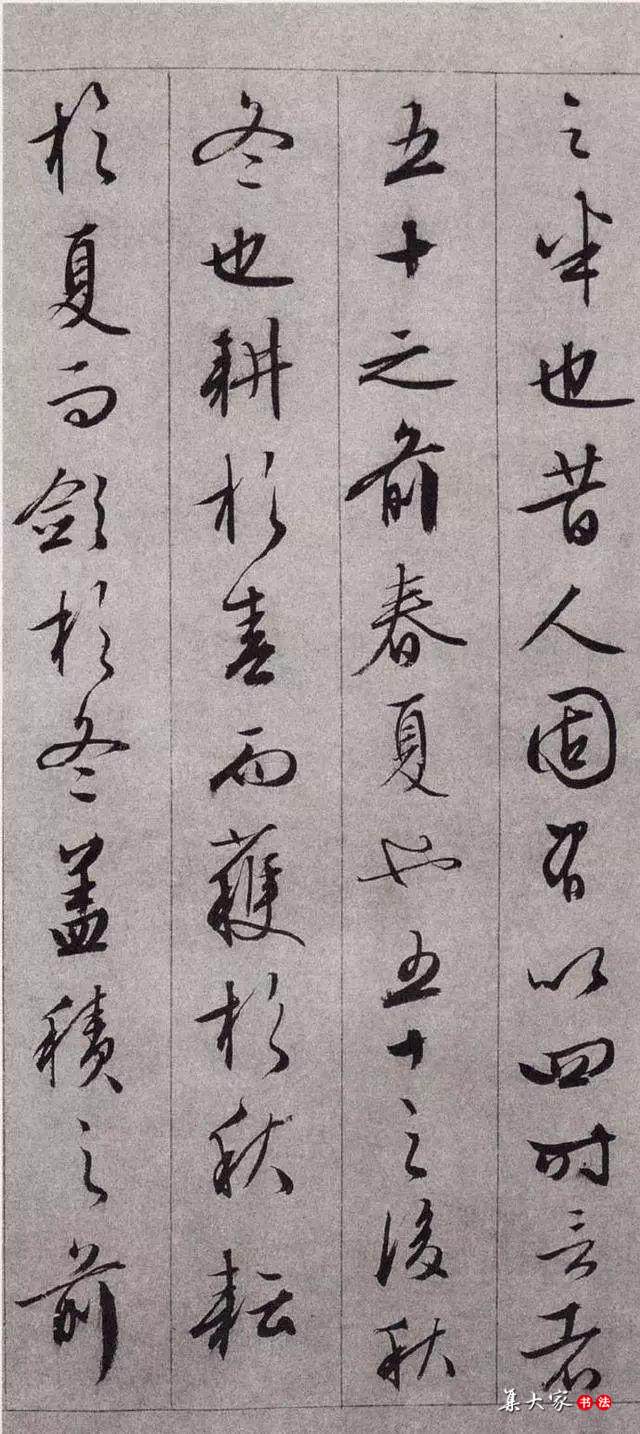 之半也昔人固有以四时言者
五十之前春夏也五十之後秋
冬也耕於春而蓛於秋耘
於夏而斂於冬盖積之前
集大家书法